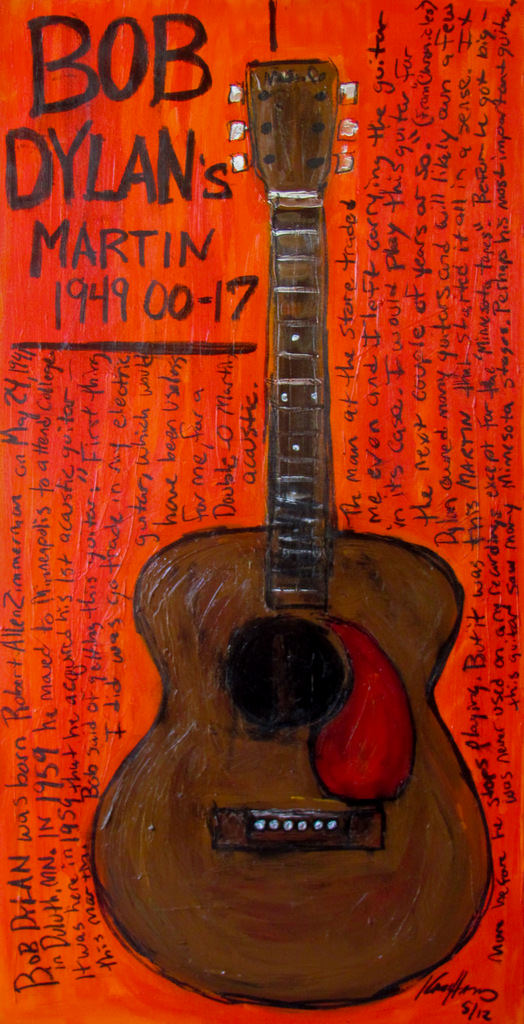 BOB
DYLAN's
MARTIN
1949 00-17
BOB DYLAN was born Robert Allen Zimmerman on May 24, 1941
in Duluth, MN. IN 1959 he moved to Minneapolis to attend College
It was here in 1959 that he acquired his 1st acoustic guitar
this Martin.
Bob said of getting this guitar - "First thing
I did was go trade in my electric
guitar, which would
have been useless
for me, for a
Double O Martin
acoustic.
The man at the store traded
me even and I left carrying the guitar
in its case. I would play this guitar for
the next couple of years or so." (From Chronicles)
Dylan owned many guitars and will likely own a few
more before he stops playing. But it was this MARTIN that started it all in a sense. It
was never used on any recordings except for the "Minnesota tapes". Before he got big-
this guitar saw many Minnesota Stages. Perhaps his most important guitar.
5/12